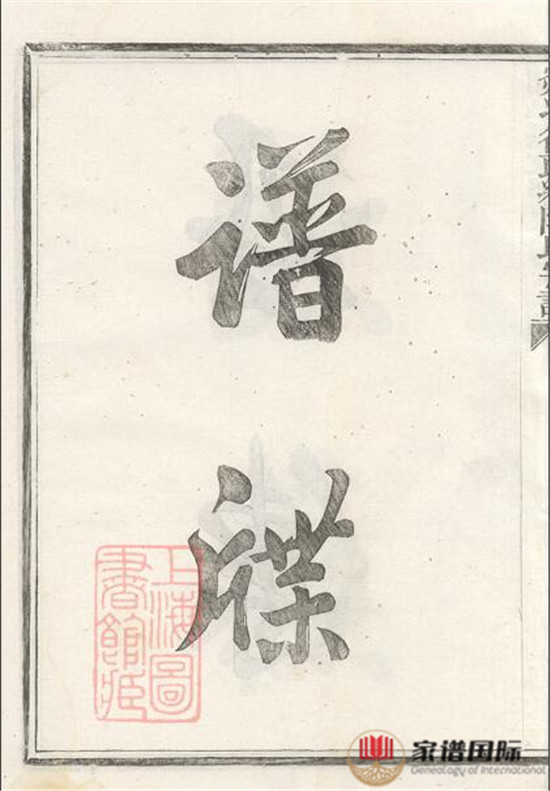 谱
牒
上海圖
書館藏
家谱国际
Genealogy of International